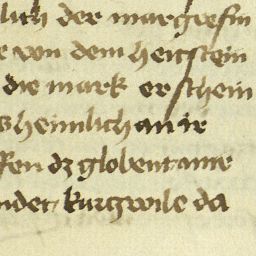 lich der margrefin
e von dem heitstein
die mark erschein
s heimlich an ir
ffen dz globent ane
ndet kurzwile da